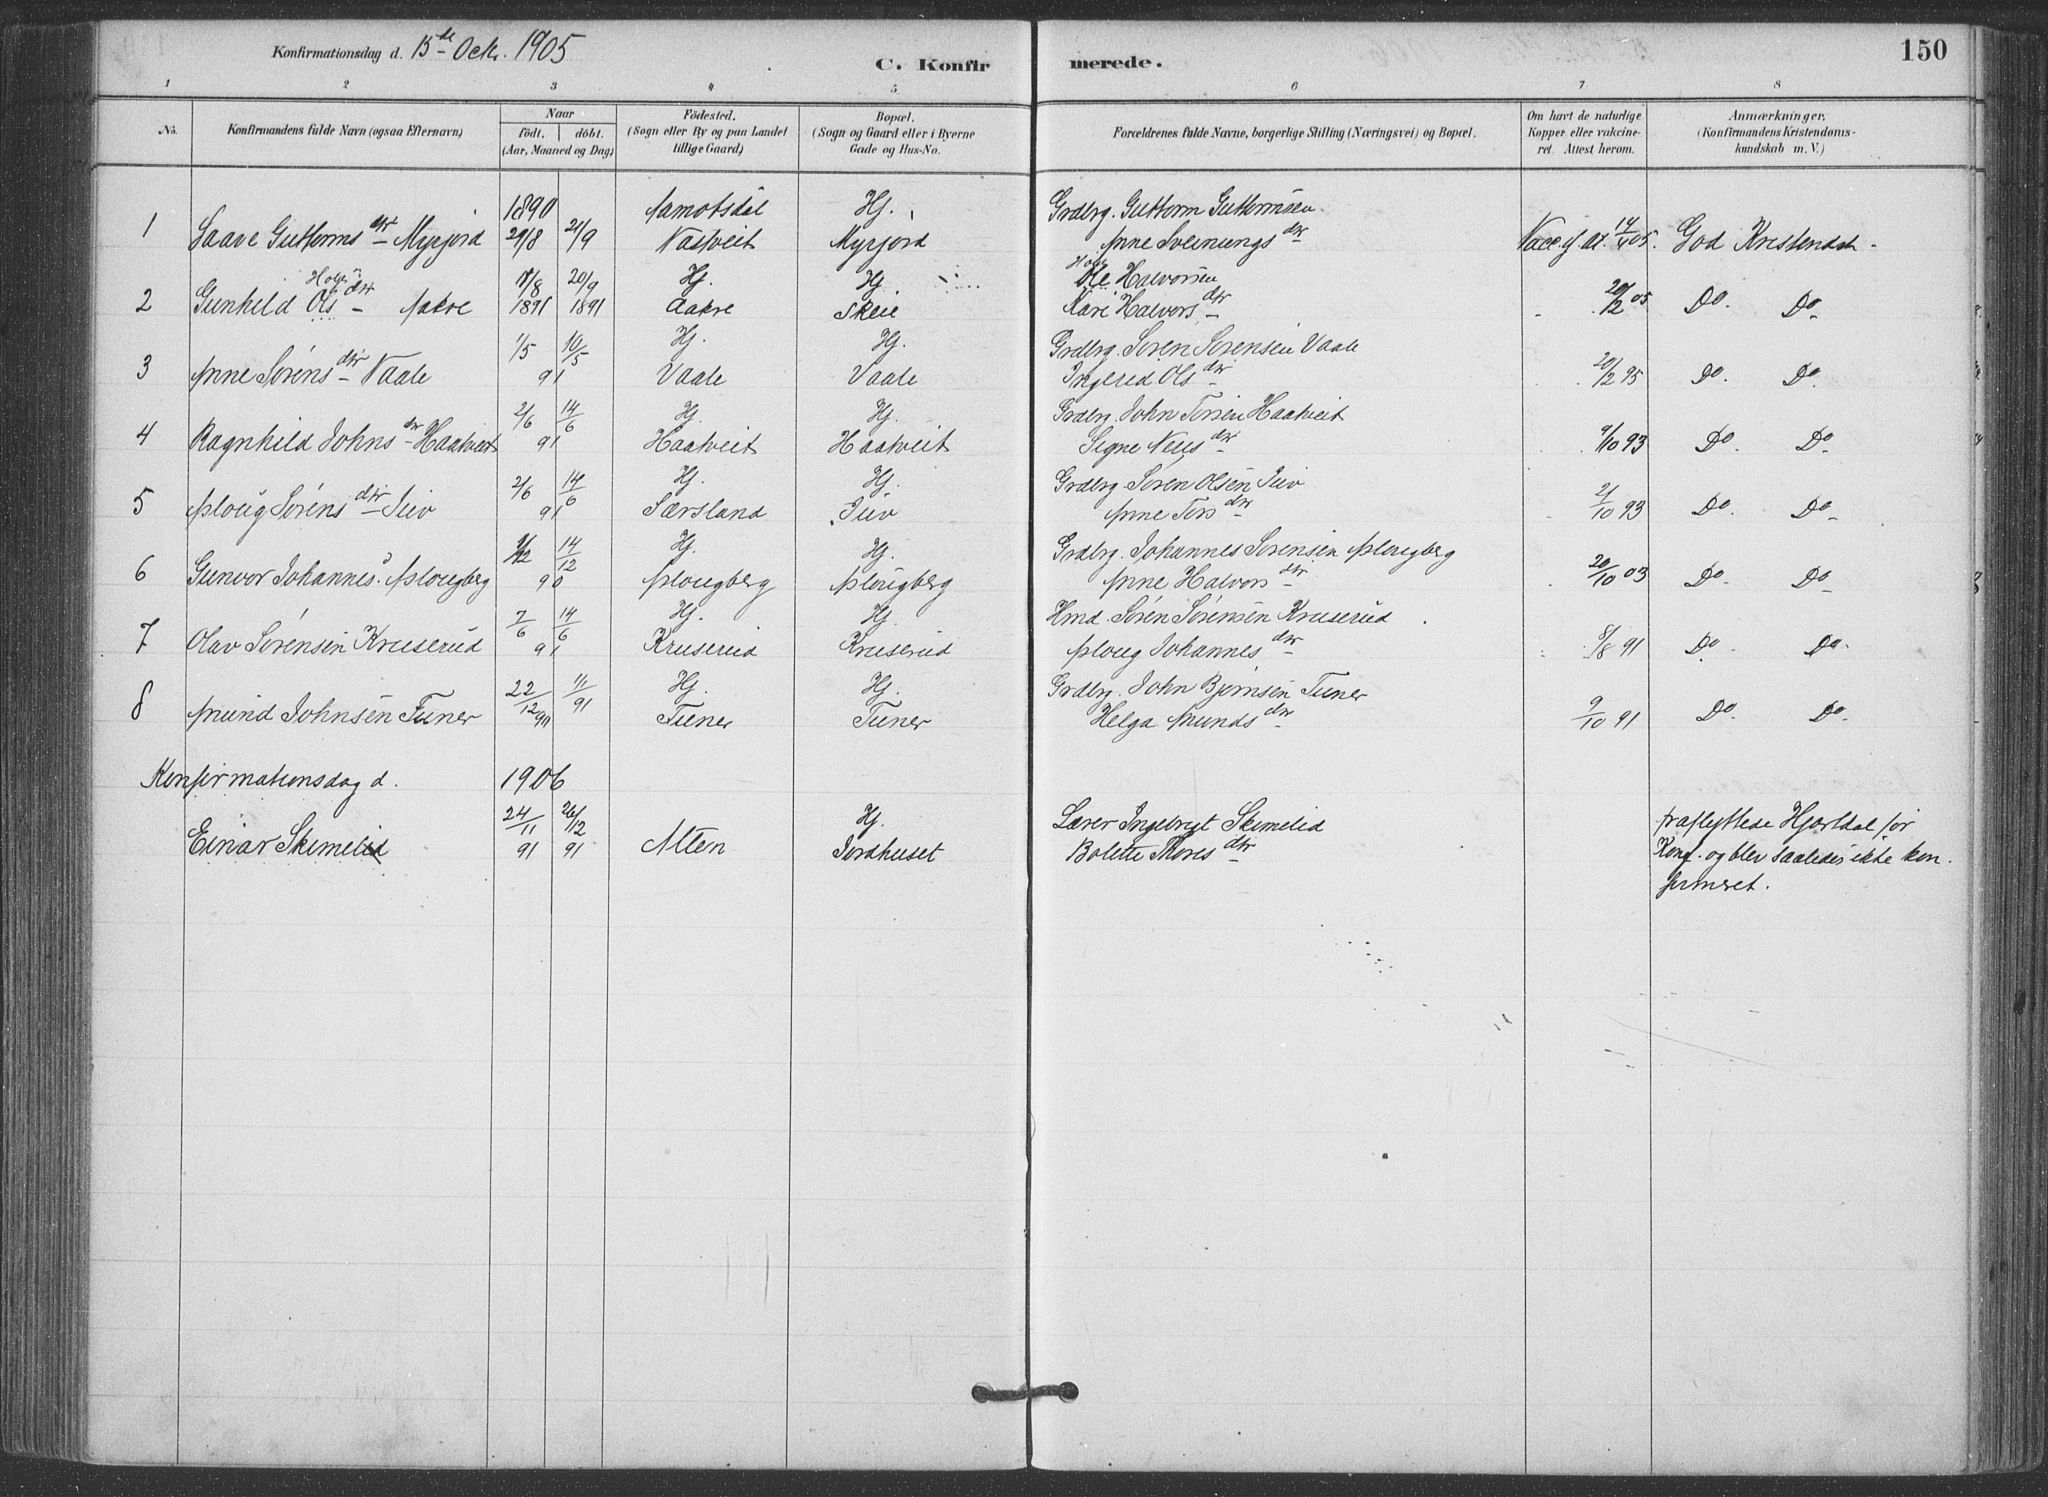 Konfirmationsdag d. 15de Octr. 1905
C. Konfirmerede.
150
1 2 3 4 5 6 7 8
No. Konfirmandens fulde Navn (ogsaa Efternavn) Naar født. døbt. (Aar, Maaned og Dag) Födested. (Sogn eller By og paa Landet tillige Gaard) Bopæl. (Sogn og Gaard eller i Byerne Gade og Hus-No. Forældrenes fulde Navne, borgerlige Stilling (Næringsvei) og Bopæl. Om havt de naturlige Kopper eller vakcineret. Attest herom. Anmærkninger. (Konfirmandens Kristendomskundskab m. V.)
1890 Aamotsdal Hj. Grdbrg. Guttorm Guttormsen.
1 Saave Guttorms dtr Myrjord 29/8 21/9 Nastveit Myrjord Anne Sveinungs dtr Vacc. if. at. 05. God Kristendsk.
Holje 20/9 Hj. Hj. Holje Ole Halvorsen
2 Gunhild Ols dtr Aakre 1891 1891 Aakre Skeie Kari Halvors dtr 20/2 05 Do. Do
1/5 10/5 Hj. Hj. Grdbrg. Søren Sørensen Vaale
3 Anne Sørens dtr Vaale 91 Vaale Vaale Ingerid Ols dtr 20/2 95 Do. Do.
2/6 14/6 Hj. Hj. Grdbrg. John Torsen Haatveit
4 Ragnhild Johns dtr Haatveit 91 Haatveit Haatveit Signe Nils dtr 9/10 93 Do Do
2/6 14/6 Hj. Hj. Grdbrg. Søren Olsen Juv
5 Aloug Sørens dtr Juv 91 Særsland Juv Anne Tors dtr 2/10 93 Do. Do
14/12 Hj. Hj. Grdbrg. Johannes Sørensen Plougberg
6 Gunvor Johannesd. Plougberg 90 Plougberg Plougberg Anne Halvors dtr 20/10 03 Do Do
7/6 14/6 Hj. Hj. Hmd Søren Sørensen Kruserud
7 Olav Sørensen Kruserud 91 Kruserud Kruserud Aloug Johannes dtr 8/8 91 Do. Do.
22/12 90 11/91 Hj. Hj. Grdbrg. John Bjørnsen Tuner
8 Amund Johnsen Tuner Tuner Tuner Helga Amunds dtr 9/10 91 Do. Do.
Konfirmationsdag d. 1906
24/11 26/12 Hj. Lærer Ingebrigt Skimelid fraflyttede Hjartdal før
Einar Skimelid 91 91 Alten Jordhuset Bolette Thores dtr Konf. og blev saaledes ikke kon-
firmeret.